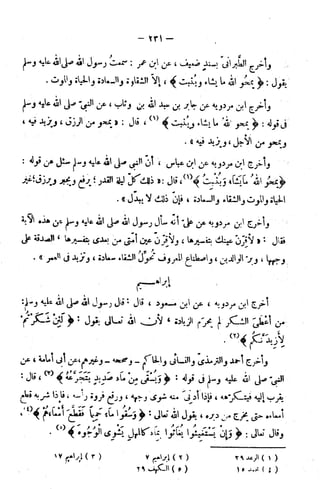 — ٢٣١ —
وأخرج الطبرانى بسند ضعيف ، عن ابن عمر : سمعت رسول الله صلى الله عليه وسلم
يقول : ﴿ يمحو الله ما يشاء ويثبت ﴾ ، إلّا الشقاوة والسعادة والحياة والموت .
وأخرج ابن مردويه عن جابر بن عبد الله بن وثاب ، عن النبيّ صلى الله عليه وسلم
فى قوله : ﴿ يَمْحُو اللهُ مَا يَشَاءُ وَيُثْبِتُ ﴾ (١) ، قال : « يمحو من الرزق ، ويزيد فيه ،
ويمحو من الأجل ، ويزيد فيه » .
وأخرج ابن مردويه عن ابن عباس ، أنّ النبي صلى الله عليه وسلم سئل عن قوله :
﴿ يَمْحُو اللهُ مَا يَشَاءُ وَيُثْبِتُ ﴾ (١) ، قال : « ذلك كلّ ليلة القدر ؛ يرفع ويجبر ويرزق ؛ غير
الحياة والموت والشقاء والسعادة ، فإنّ ذلك لا يبدّل » .
وأخرج ابن مردويه عن علىّ أنّه سأل رسول الله صلى الله عليه وسلم عن هذه الآية
فقال : « لأقرّنّ عينك بتفسيرها ، ولأقرّنّ عين أمتى من بعدى بتفسيرها ، الصدقة على
وجهها ، وبرّ الوالدين ، واصطناع المعروف تحوّل الشقاء سعادة ، وتزيد فى العمر » .
إبراهيم
أخرج ابن مردويه ، عن ابن مسعود ، قال : قال رسول الله صلى الله عليه وسلم :
من أعطى الشكر لم يحرم الزيادة ؛ لأن الله تعالى يقول : ﴿ لَئِنْ شَكَرْتُمْ
لَأَزِيدَنَّكُمْ ﴾ (٢) .
وأخرج أحمد والترمذىّ والنسائى والحاكم – وصححه – وغيرهم عن أبى أمامة ، عن
النبيّ صلى الله عليه وسلم فى قوله : ﴿ وَيُسْقَى مِنْ مَاءٍ صَدِيدٍ يَتَجَرَّعُهُ ﴾ (٣) ، قال :
يقرب إليه فيتكرهه ، فإذا أدنى منه شوى وجهه ، ورفع فروة رأسه ، فإذا شربه قطع
أمعاءه حتى يخرج من دبره ، يقول الله تعالى : ﴿ وَسُقُوا مَاءً حَمِيمًا فَقَطَّعَ أَمْعَاءَهُمْ ﴾ (٤) ،
وقال تعالى : ﴿ وَإِنْ يَسْتَغِيثُوا يُغَاثُوا بِمَاءٍ كَالْمُهْلِ يَشْوِى الْوُجُوهَ ﴾ (٥) .
(١) الرعد ٣٩ (٢) إبراهيم ٧ (٣) إبراهيم ١٧
(٤) محمد ١٥ (٥) الكهف ٢٩